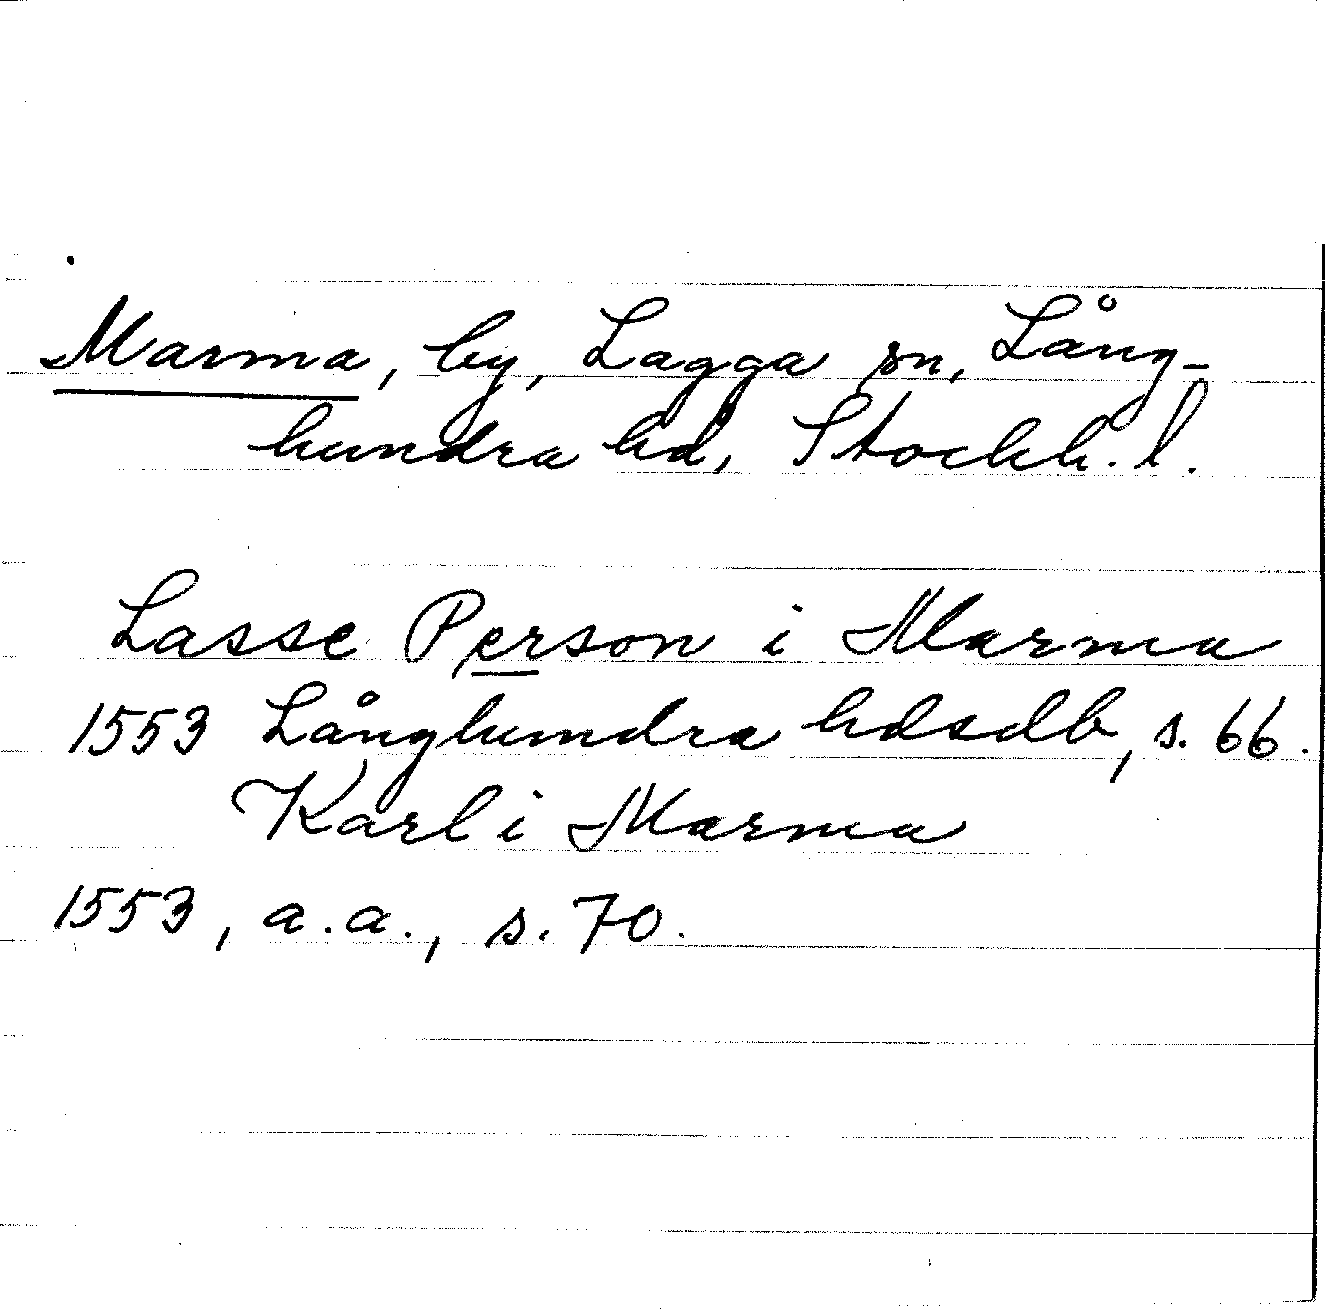 Marma, by, Lagga sn, Lång-
hundra hd, Stockh. l.
Lasse Person i Marma
1553 Långhundra hdsdb, s. 66.
Karl i Marma
1553, a.a., s. 70.